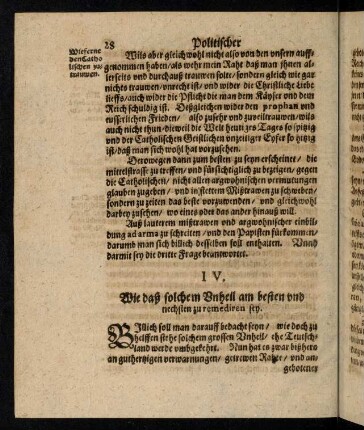 28 Politischer
Wieferne
den Catho
lischen zu
trawuen.
Wils aber gleichwohl nicht also von den vnsern auff-
genommen haben/ als wehr mein Raht daß man jhnen al-
lerseits vnd durchauß trauwen solte/ sondern gleich wie gar
nichts trauwen/ vnrecht ist/ vnd wider die Christliche Liebe
lieffs/ auch wider die Pflicht die man dem Käyser vnd dem
Reich schuldig ist. Deßgleichen wider den prophan vnd
eusserlichen Frieden/ also zusehr vnd zuviel trauwen/ wils
auch nicht thun/ dieweil die Welt heun zes Tages so spitzig
vnd der Catholischen Geistlichen vnzeitiger Eyfer so hitzig
ist/ daß man sich wohl hat vorzusehen.
Derowegen dann zum besten zu seyn erscheinet/ die
mittelstrasse zu treffen/ vnd fürsichtiglich zu bezeigen/ gegen
die Catholischen/ nicht allen argwohnischen vermutungen
glauben zugeben/ vnd in stetem Mißtrawen zu schweiben/
sondern zu zeiten das beste vorzuwenden/ vnd gleichwohl
darbey zusehen/ wo eines oder das ander hinauß will.
Auß lauterem mißtrawen vnd argwohnischer einbil-
dung ad arma zu schreiten/ vnd den Papisten fürkommen/
darumb man sich billich desselben soll enthalten. Vnnd
darmit sey die dritte Frage beantwortet.
IV.
Wie daß solchem Vnheil am besten vnd
nechsten zu remediren sey.
BIllich soll man darauff bedacht seyn/ wie doch zu
helffen stehe solchem grossen Vnheil/ ehe Teutsch-
land werde vmbgekehrt. Nun hat es zwar bißhero
an gutherzigen verwarnungen/ getrewen Räht/ vnd an-
gebotener